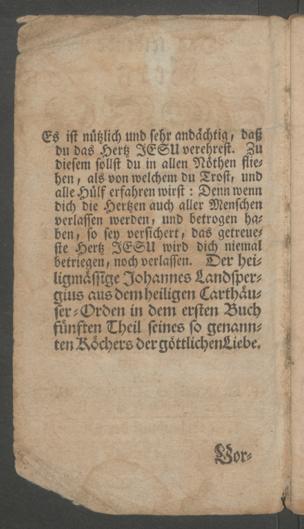 Es ist nützlich und sehr andächtig, daß
du das Hertz JESU verehrest. Zu
diesem sollst du in allen Nöthen flie-
hen, als von welchem du Trost, und
alle Hülf erfahren wirst : Denn wenn
dich die Hertzen auch aller Menschen
verlassen werden, und betrogen ha-
ben, so sey versichert, das getreue-
ste Hertz JESU wird dich niemal
betriegen, noch verlassen. Der hei-
ligmässige Johannes Landsper-
gius aus dem heiligen Carthäu-
ser-Orden in dem ersten Buch
fünften Theil seines so genann-
ten Köchers der göttlichen Liebe.
Vor-